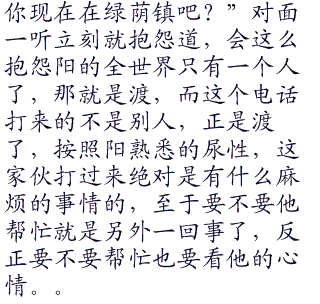 你现在在绿荫镇吧？”对面
一听立刻就抱怨道，会这么
抱怨阳的全世界只有一个人
了，那就是渡，而这个电话
打来的不是别人，正是渡
了，按照阳熟悉的尿性，这
家伙打过来绝对是有什么麻
烦的事情的，至于要不要他
帮忙就是另外一回事了，反
正要不要帮忙也要看他的心
情。。